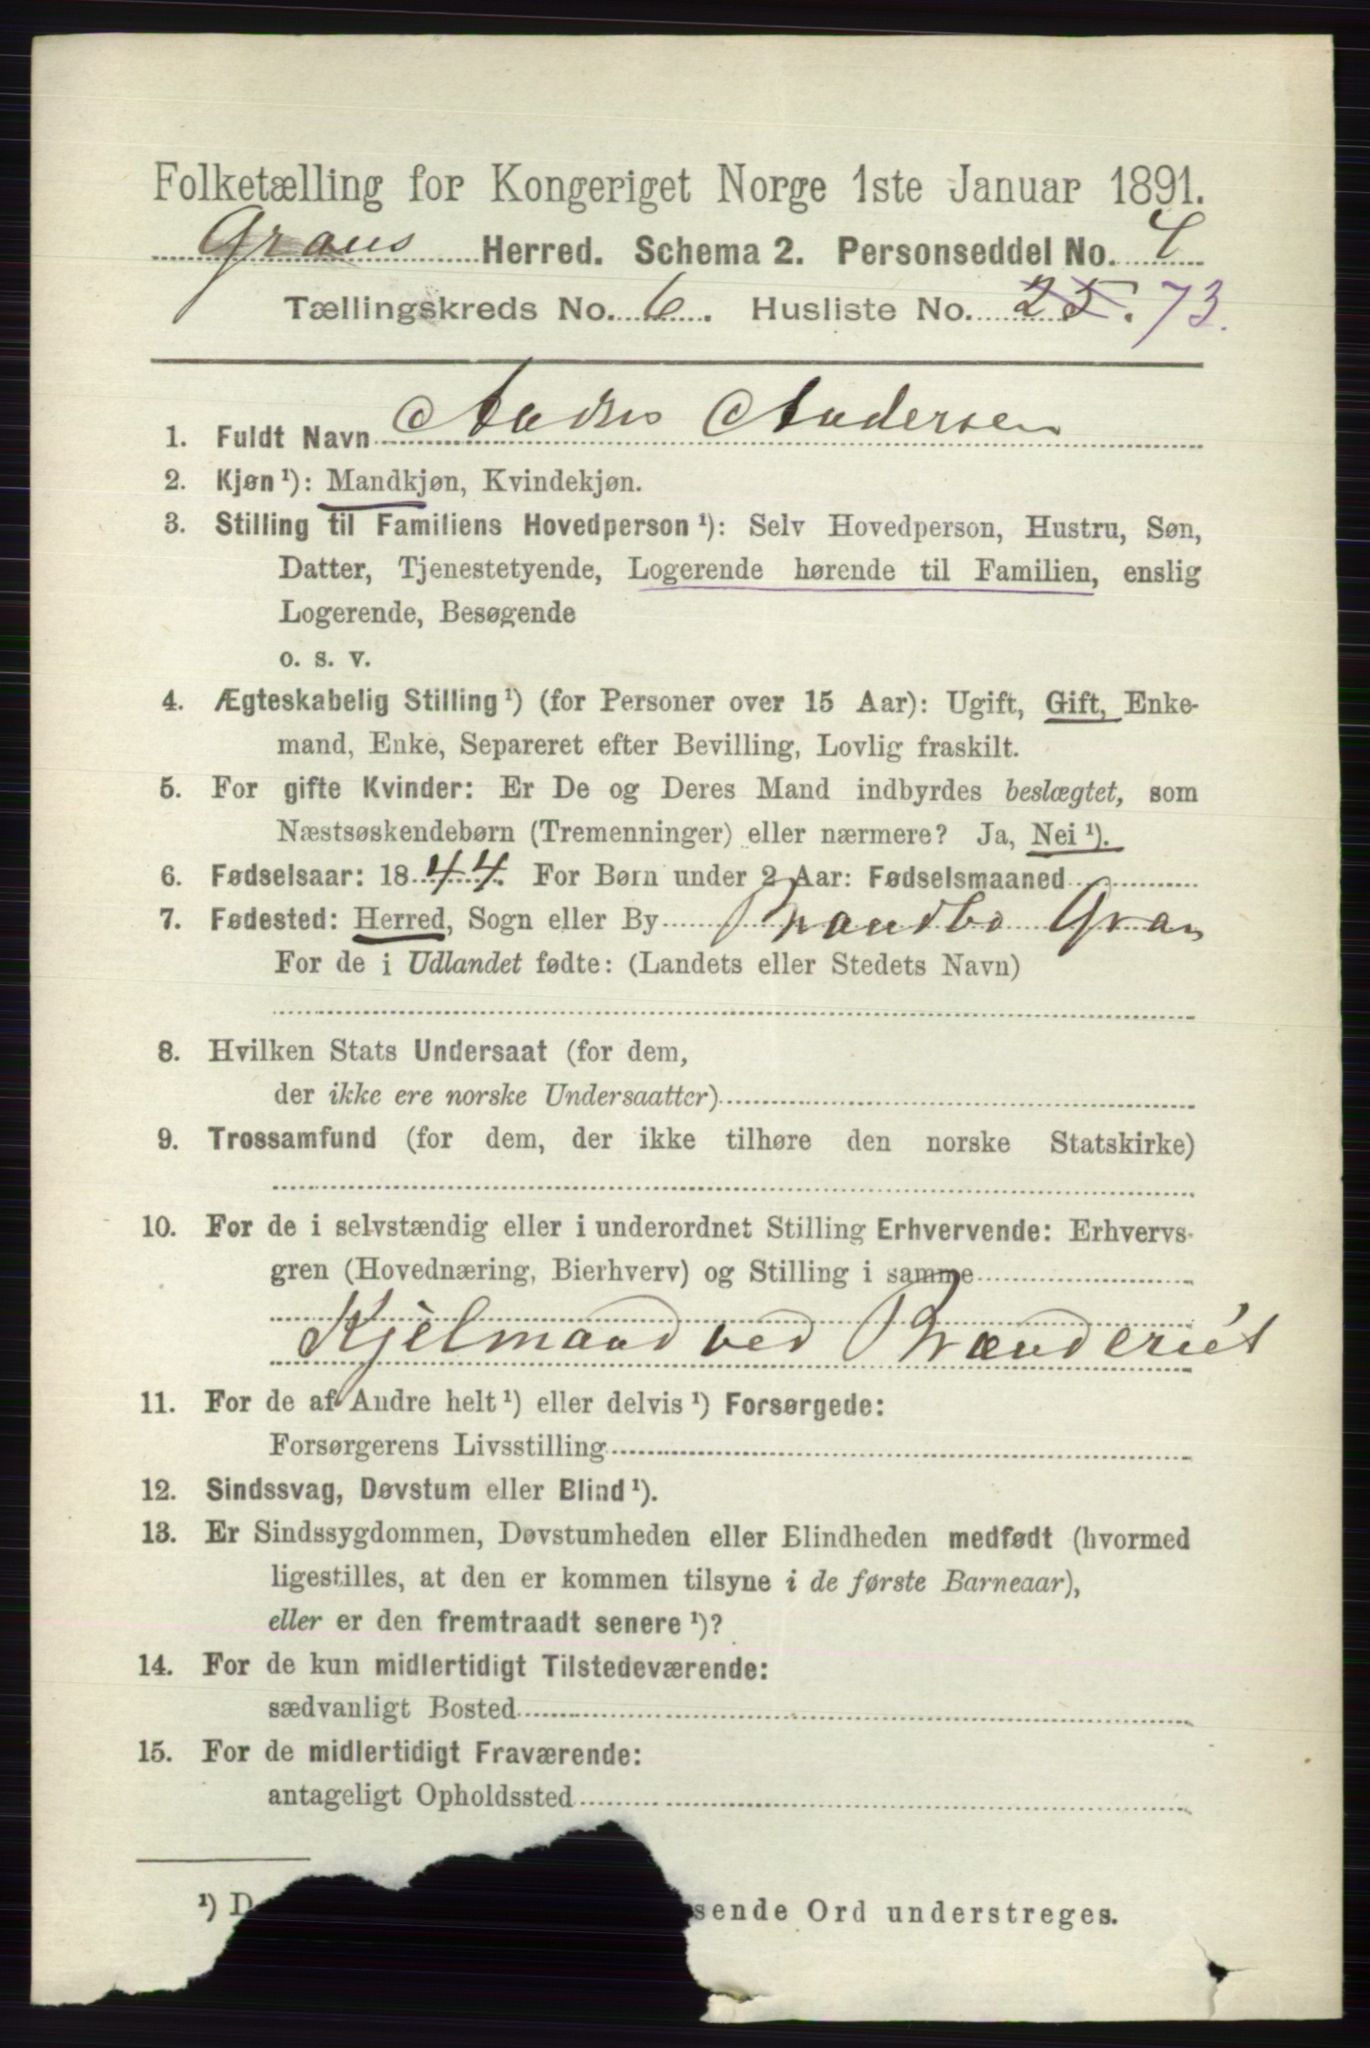 Folketælling for Kongeriget Norge 1ste Januar 1891.
Grans Herred. Schema 2. Personseddel No. 4
Tællingskreds No. 6. Husliste No. 25. 73.
1. Fuldt Navn Anders Andersen
2. Kjøn ¹): Mandkjøn, Kvindekjøn.
3. Stilling til Familiens Hovedperson ¹): Selv Hovedperson, Hustru, Søn,
Datter, Tjenestetyende, Logerende hørende til Familien, enslig
Logerende, Besøgende
o. s. v.
4. Ægteskabelig Stilling ¹) (for Personer over 15 Aar): Ugift, Gift, Enke-
mand, Enke, Separeret efter Bevilling, Lovlig fraskilt.
5. For gifte Kvinder: Er De og Deres Mand indbyrdes beslægtet, som
Næstsøskendebørn (Tremenninger) eller nærmere? Ja, Nei ¹).
6. Fødselsaar: 1844. For Børn under 2 Aar: Fødselsmaaned
7. Fødested: Herred, Sogn eller By Brandbo Gran
For de i Udlandet fødte: (Landets eller Stedets Navn)
8. Hvilken Stats Undersaat (for dem,
der ikke ere norske Undersaatter)
9. Trossamfund (for dem, der ikke tilhøre den norske Statskirke)
10. For de i selvstændig eller i underordnet Stilling Erhvervende: Erhvervs-
gren (Hovednæring, Bierhverv) og Stilling i samme
Kjelmand ved Brænderiet
11. For de af Andre helt ¹) eller delvis ¹) Forsørgede:
Forsørgerens Livsstilling
12. Sindssvag, Døvstum eller Blind ¹).
13. Er Sindssygdommen, Døvstumheden eller Blindheden medfødt (hvormed
ligestilles, at den er kommen tilsyne i de første Barneaar),
eller er den fremtraadt senere ¹)?
14. For de kun midlertidigt Tilstedeværende:
sædvanligt Bosted
15. For de midlertidigt Fraværende:
antageligt Opholdssted
¹) D sende Ord understreges.